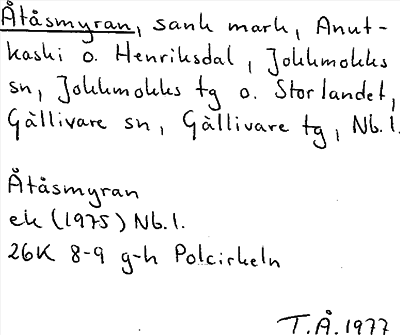 Åtåsmyran, sank mark, Anut-
kaski o. Henriksdal, Jokkmokks
sn, Jokkmokks tg o. Storlandet,
Gällivare sn, Gällivare tg, Nb.l.
Åtåsmyran
ek (1975) Nb.l.
26K 8-9 g-h Polcirkeln
T.Å. 1977